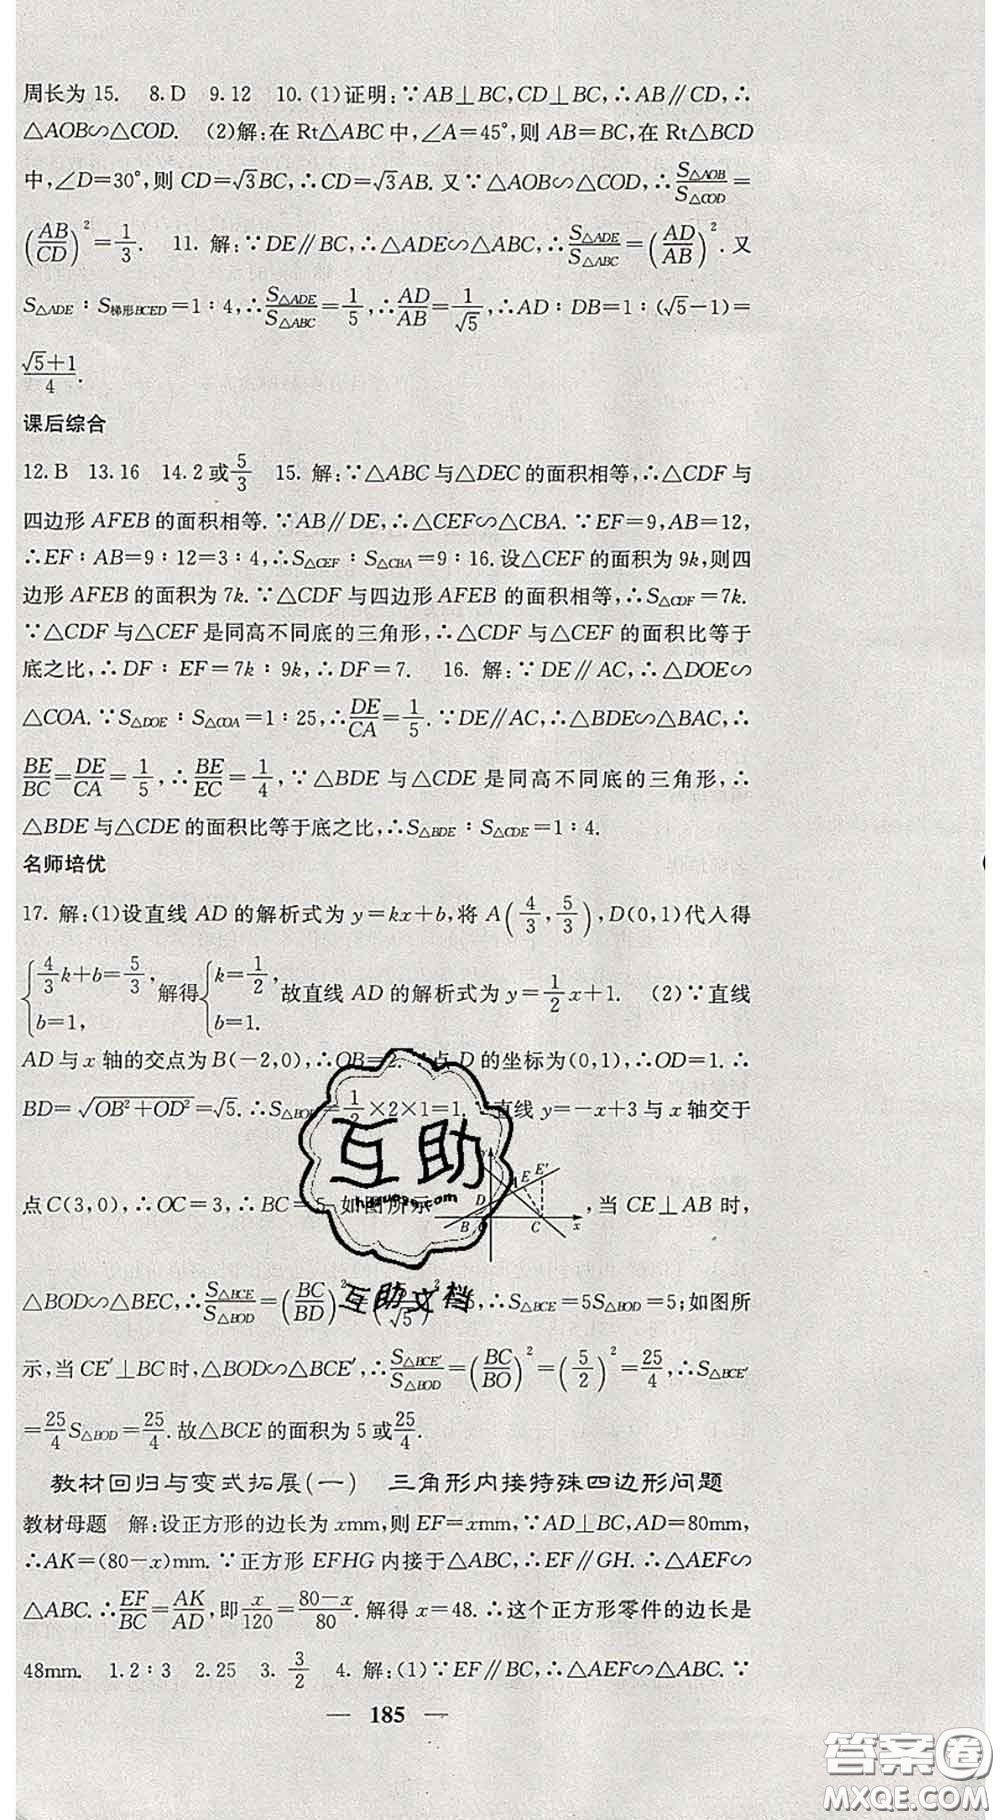 周长为 15.　8. D　9. 12　10. (1)证明:∵AB⊥BC,CD⊥BC,∴AB∥CD,∴
△AOB∽△COD.　(2)解:在 Rt△ABC 中,∠A=45°,则 AB=BC,在 Rt△BCD
中,∠D=30°,则 CD=√3BC,∴CD=√3AB. 又∵△AOB∽△COD,∴S△AOB/S△COD=
(AB/CD)²=1/3.　11. 解:∵DE∥BC,∴△ADE∽△ABC,∴S△ADE/S△ABC=(AD/AB)². 又
S△ADE∶S梯形BCED=1∶4,∴S△ADE/S△ABC=1/5,∴AD/AB=1/√5,∴AD∶DB=1∶(√5-1)=
(√5+1)/4.
课后综合
12. B　13. 16　14. 2 或5/3　15. 解:∵△ABC 与△DEC 的面积相等,∴△CDF 与
四边形 AFEB 的面积相等. ∵AB∥DE,∴△CEF∽△CBA. ∵EF=9,AB=12,
∴EF∶AB=9∶12=3∶4,∴S△CEF∶S△CBA=9∶16. 设△CEF 的面积为 9k,则四
边形 AFEB 的面积为 7k. ∵△CDF 与四边形 AFEB 的面积相等,∴S△CDF=7k.
∵△CDF 与△CEF 是同高不同底的三角形,∴△CDF 与△CEF 的面积比等于
底之比,∴DF∶EF=7k∶9k,∴DF=7.　16. 解:∵DE∥AC,∴△DOE∽
△COA. ∵S△DOE∶S△COA=1∶25,∴DE/CA=1/5. ∵DE∥AC,∴△BDE∽△BAC,∴
BE/BC=DE/CA=1/5,∴BE/EC=1/4. ∵△BDE 与△CDE 是同高不同底的三角形,∴
△BDE 与△CDE 的面积比等于底之比,∴S△BDE∶S△CDE=1∶4.
名师培优
17. 解:(1)设直线 AD 的解析式为 y=kx+b,将 A(4/3,5/3),D(0,1)代入得
{4/3k+b=5/3, b=1, 解得{k=1/2, b=1. 故直线 AD 的解析式为 y=1/2x+1.　(2)∵直线
AD 与 x 轴的交点为 B(-2,0),∴OB=2. ∵点 D 的坐标为(0,1),∴OD=1. ∴
BD=√(OB²+OD²)=√5. ∴S△BOD=1/2×2×1=1. ∵直线 y=-x+3 与 x 轴交于
点 C(3,0),∴OC=3,∴BC=5. 如图所示 y A E E′ D B O C x ,当 CE⊥AB 时,
△BOD∽△BEC,∴S△BCE/S△BOD=(BC/BD)²=(5/√5)²=5,∴S△BCE=5S△BOD=5;如图所
示,当 CE′⊥BC 时,△BOD∽△BCE′,∴S△BCE′/S△BOD=(BC/BO)²=(5/2)²=25/4,∴S△BCE′
=25/4S△BOD=25/4. 故△BCE 的面积为 5 或25/4.
教材回归与变式拓展(一)　三角形内接特殊四边形问题
教材母题　解:设正方形的边长为 xmm,则 EF=xmm,∵AD⊥BC,AD=80mm,
∴AK=(80-x)mm. ∵正方形 EFHG 内接于△ABC,∴EF∥GH. ∴△AEF∽
△ABC. ∴EF/BC=AK/AD,即x/120=(80-x)/80. 解得 x=48. ∴这个正方形零件的边长是
48mm.　1. 2∶3　2. 25　3. 3/2　4. 解:(1)∵EF∥BC,∴△AEF∽△ABC. ∵
— 185 —
互助
hdzuoye.com
互助文档
答案圈
MXQE.COM